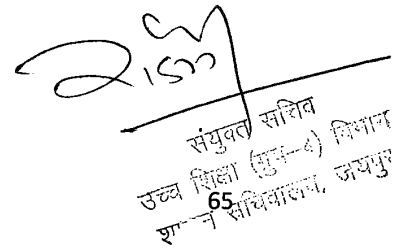 संयुक्त सचिव
उच्च शिक्षा (ग्रुप-4) विभाग
65
सचिवालय, जयपुर